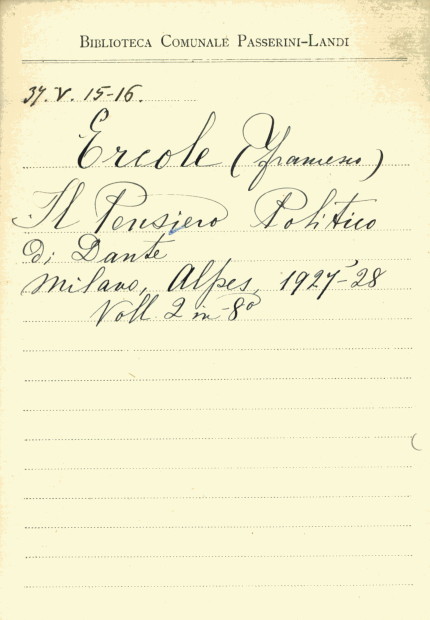 BIBLIOTECA COMUNALE PASSERINI-LANDI
37. V. 15-16.
Ercole (Francesco)
Il Pensiero Politico
di Dante
Milano, Alpes, 1927-28
Voll. 2 in-8°